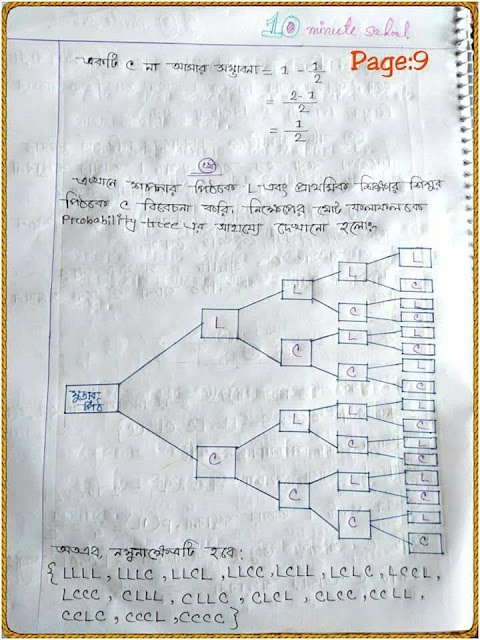 10 minute school
Page:9
একটি C না আসার সম্ভাবনা = 1 - 1/2
= 2-1/2
= 1/2
এখানে শাপলার পিঠকে L এবং প্রাথমিক শিক্ষার শিশুর
পিঠকে C বিবেচনা করি, নিক্ষেপের মোট ফলাফলকে
Probability tree এর সাহায্যে দেখানো হলো:
L
L
L
L
C
C
L
C
C
L
L
C
C
L
C
মুদ্রার পিঠ
C
L
L
L
C
C
L
C
C
L
L
C
C
L
C
অতএব, নমুনাক্ষেত্রটি হবে:
{LLLL, LLLC, LLCL, LLCC, LCLL, LCLC, LCCL,
LCCC, CLLL, CLLC, CLCL, CLCC, CCLL,
CCLC, CCCL, CCCC}